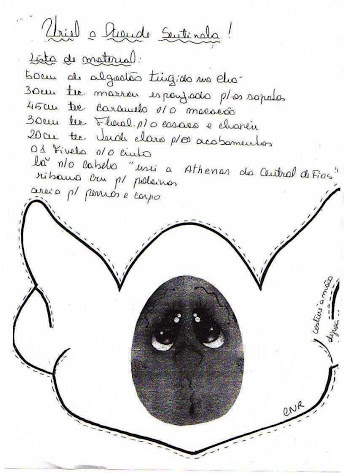 Uriel o Duende Sentinela!
Lista de material:
50cm de algodão tingido no chá
30cm tec marrom esponjado p/os sapatos
45cm tec caramelo p/o macacão
30cm tec Floral p/o casaco e chapéu
20cm tec Verde claro p/os acabamentos
01 Fivela p/o cinto
lã p/o cabelo "usei a Athenas da Central de Fios"
ribana cru p/
areia p/ pernas e corpo
costurar a mão
depois
CNR